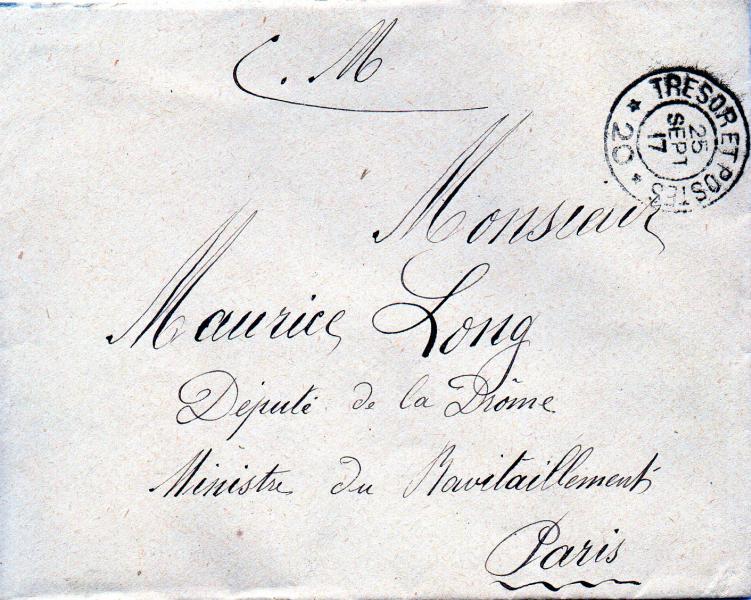 C. M
TRESOR ET POSTES
* 20 *
25
SEPT
17
Monsieur
Maurice Long
Député de la Drôme
Ministre du Ravitaillement
Paris